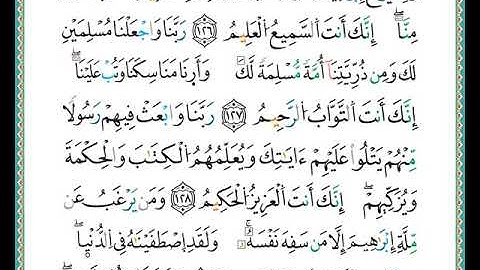 مِنَّآۖ إِنَّكَ أَنتَ ٱلسَّمِيعُ ٱلْعَلِيمُ ١٢٦ رَبَّنَا وَٱجْعَلْنَا مُسْلِمَيْنِ
لَكَ وَمِن ذُرِّيَّتِنَآ أُمَّةٗ مُّسْلِمَةٗ لَّكَۖ وَأَرِنَا مَنَاسِكَنَا وَتُبْ عَلَيْنَآۖ
إِنَّكَ أَنتَ ٱلتَّوَّابُ ٱلرَّحِيمُ ١٢٧ رَبَّنَا وَٱبْعَثْ فِيهِمْ رَسُولٗا
مِّنْهُمْ يَتْلُواْ عَلَيْهِمْ ءَايَٰتِكَ وَيُعَلِّمُهُمُ ٱلْكِتَٰبَ وَٱلْحِكْمَةَ
وَيُزَكِّيهِمْۖ إِنَّكَ أَنتَ ٱلْعَزِيزُ ٱلْحَكِيمُ ١٢٨ وَمَن يَرْغَبُ عَن
مِّلَّةِ إِبْرَٰهِيمَ إِلَّا مَن سَفِهَ نَفْسَهُۥۖ وَلَقَدِ اِ۪صْطَفَيْنَٰهُ فِي ٱلدُّنْيَاۖ